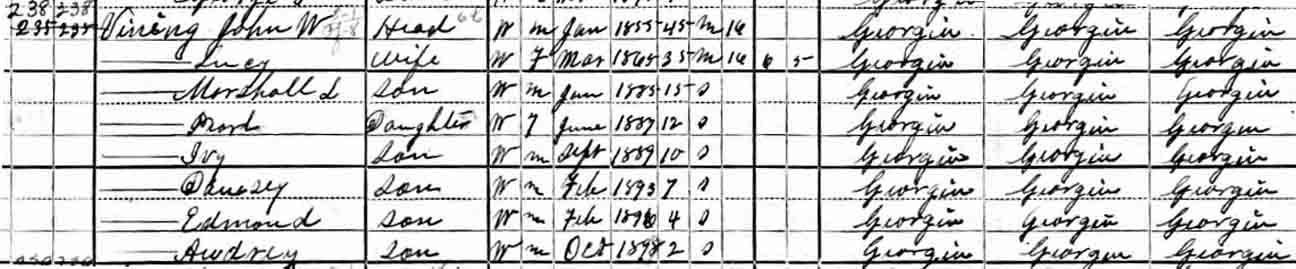 238 238
235 235 Vining John W Head W m Jan 1855 45 M 16 Georgia Georgia Georgia
Lucy Wife W F Mar 1865 35 M 16 6 5 Georgia Georgia Georgia
Marshall L Son W m Jan 1885 15 S Georgia Georgia Georgia
Daughter W F June 1887 12 S Georgia Georgia Georgia
Ivy Son W m Sept 1889 10 S Georgia Georgia Georgia
Son W m Feb 1893 7 S Georgia Georgia Georgia
Edmond Son W m Feb 1896 4 S Georgia Georgia Georgia
Audrey Son W m Oct 1898 2 S Georgia Georgia Georgia